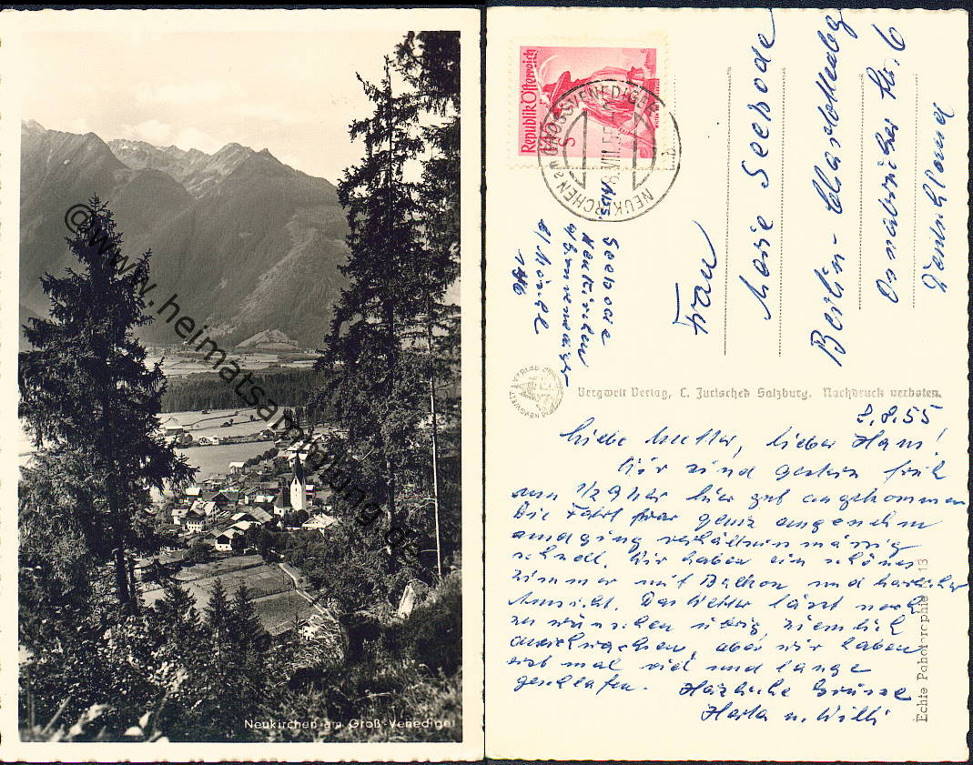 © www.heimatsammlung.de
Neukirchen am Groß-Venediger
Republik Österreich
NEUKIRCHEN am GROSSVENEDIGER
Abs.
Seebode
Neukirchen
Frau
Marie Seebode
Berlin-Charlottenbg
Osnabrücker Str. 6
Deutschland
Bergwelt Verlag, C. Jurischek Salzburg. Nachdruck verboten.
Echte Photographie
13
8.8.55
Liebe Mutter, lieber Hans!
Wir sind gestern früh
um hier gut angekommen
Die Fahrt war ganz angenehm
und ging verhältnismässig
schnell. Wir haben ein schönes
Zimmer mit Balkon und herrlicher
Aussicht. Das Wetter lässt noch
zu wünschen übrig, ziemlich
aber wir haben
erst mal viel und lange
geschlafen. Herzliche Grüsse
Herta u. Willi